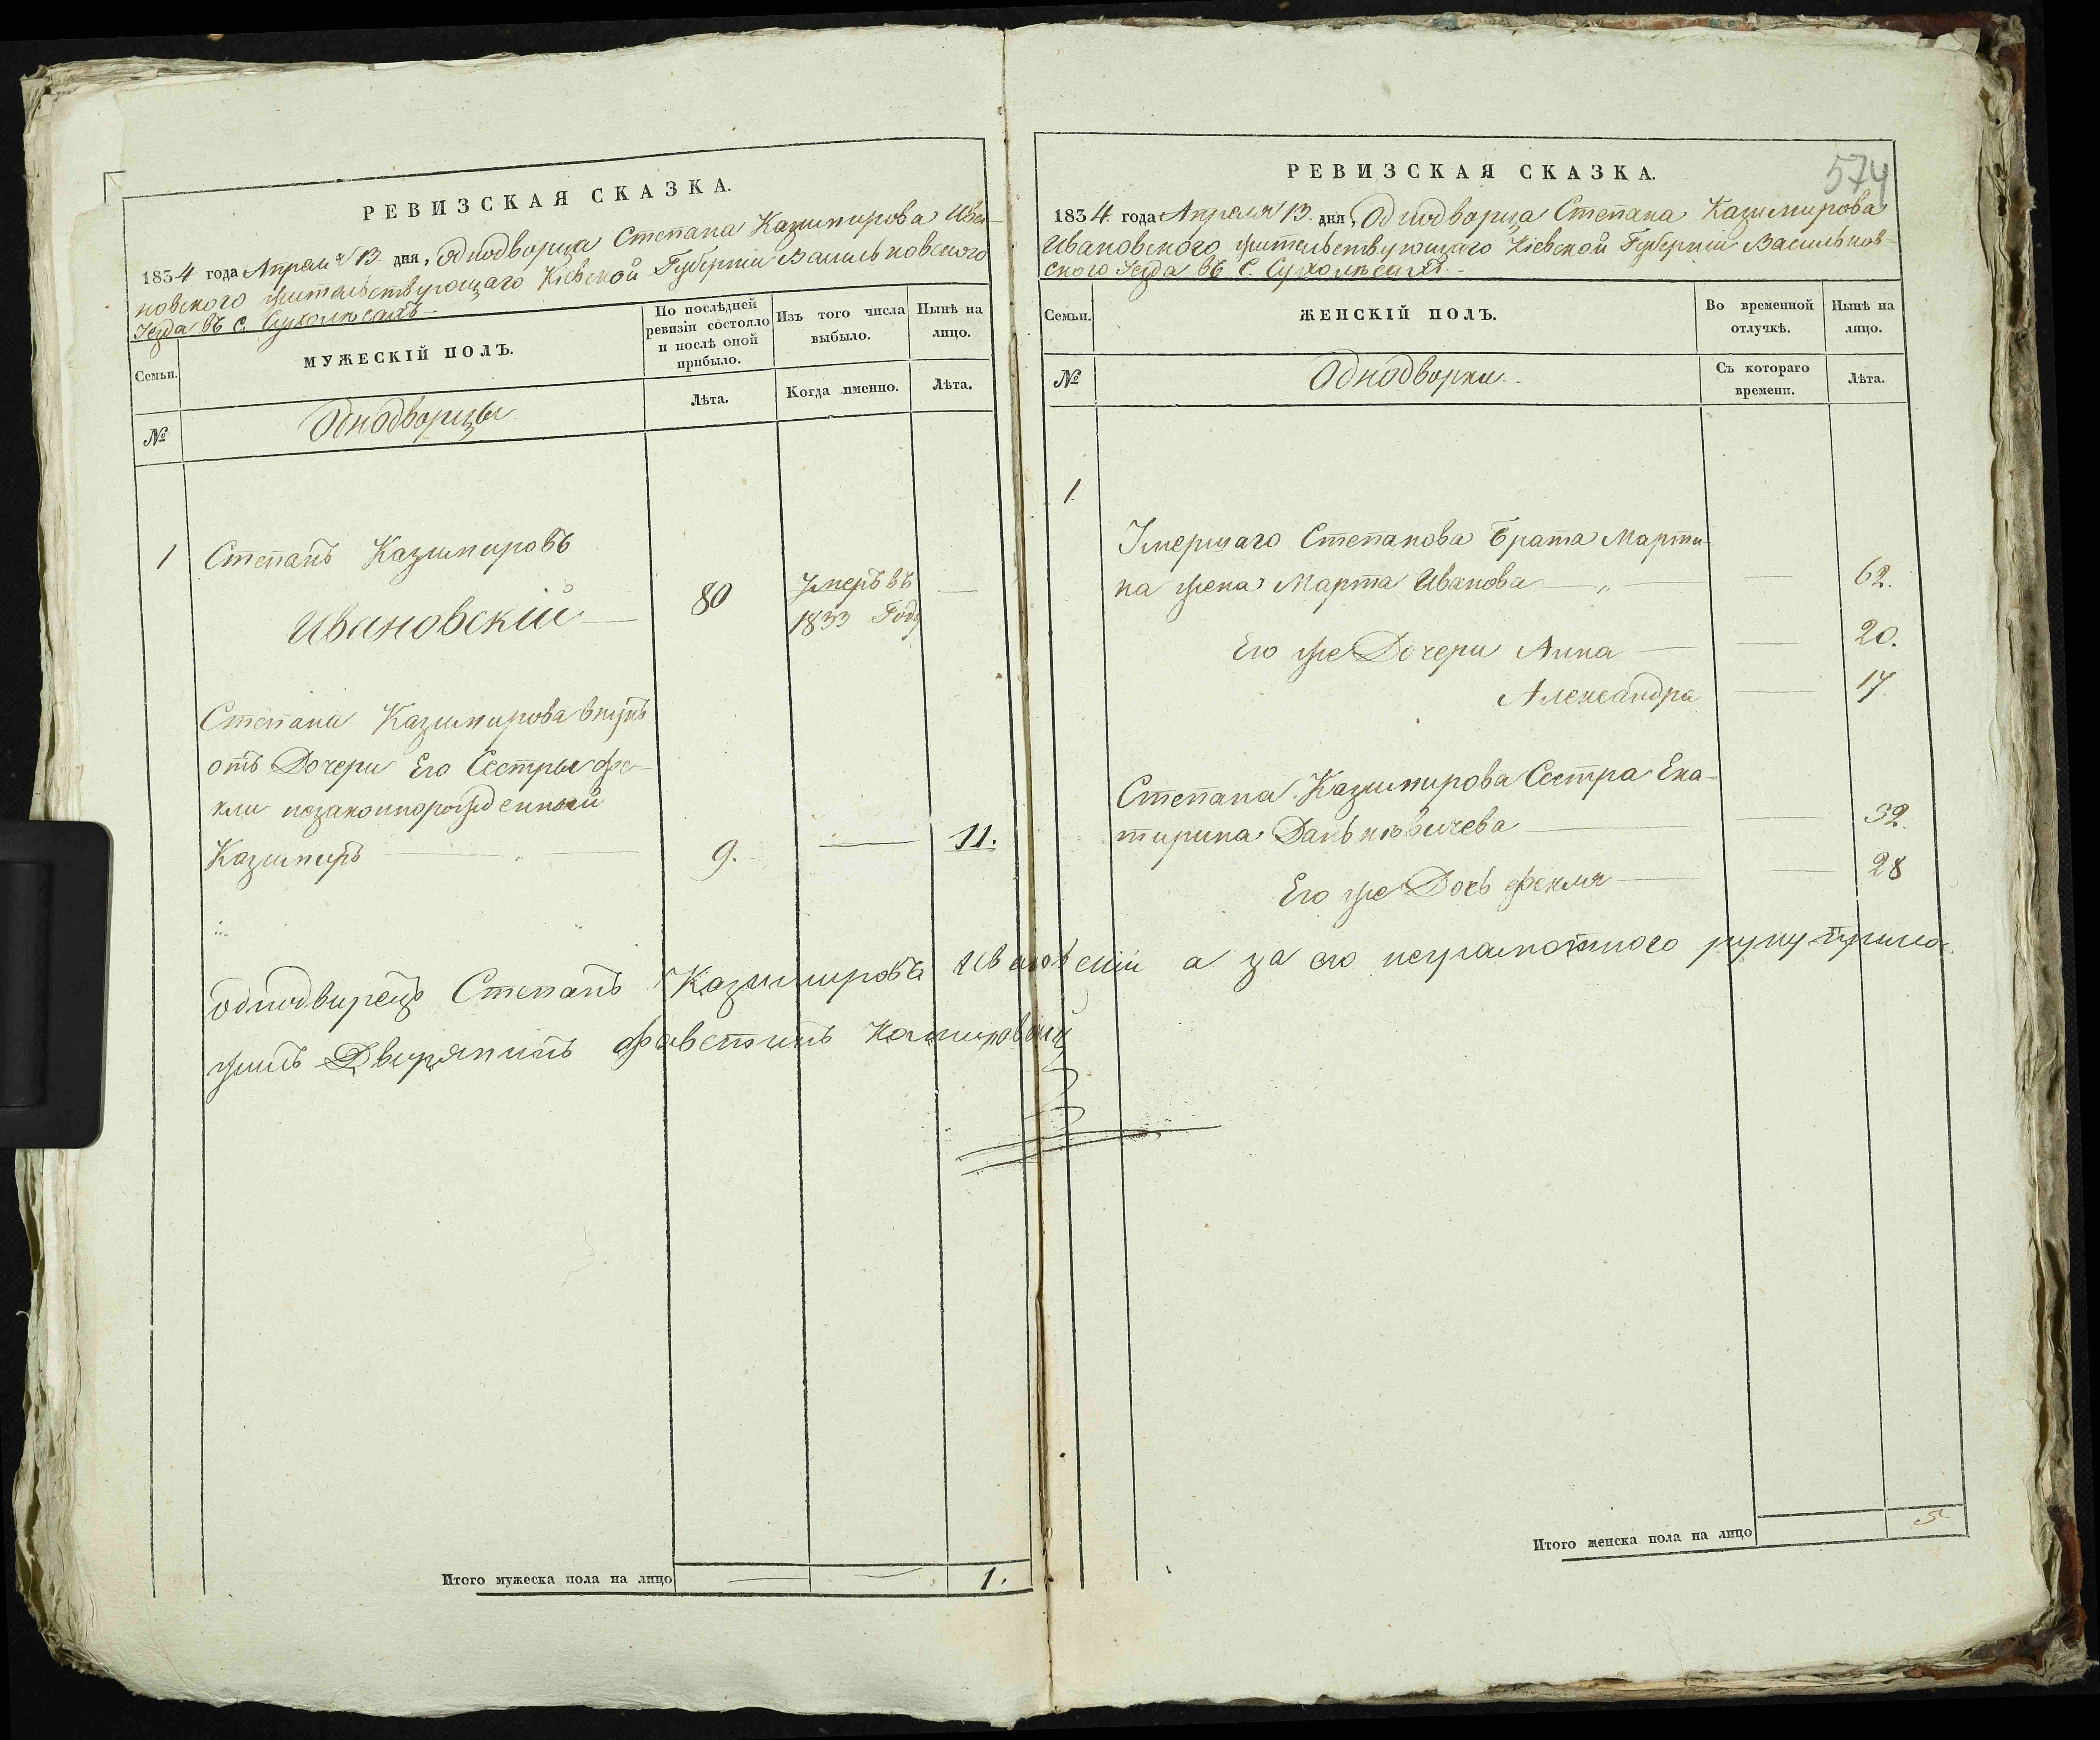 РЕВИЗСКАЯ СКАЗКА.
1834 года Апреля 13. дня, Однодворца Степана Казимирова Ива-
новского жительствующаго Кіевской Губерніи Васильковского
Уезда въ С. Сухолѣсахъ
Семьи.
МУЖЕСКІЙ ПОЛЪ.
По послѣдней ревизіи состояло и послѣ оной прибыло.
Изъ того числа выбыло.
Нынѣ на лицо.
№
Однодворцы
Лѣта.
Когда именно.
Лѣта.
1 Степанъ Казимировъ
Ивановскій 80 Умеръ въ 1833 Году —
Степана Казимирова внукъ
отъ Дочери Его Сестры Фе-
кли незаконнорожденный
Казимиръ 9. — 11.
Однодворецъ Степанъ Казимировъ Ивановскій а за его неграмотного руку прило
жилъ Дворянинъ
Итого мужеска пола на лицо — — 1.
574
РЕВИЗСКАЯ СКАЗКА.
1834 года Апреля 13. дня, Однодворца Степана Казимирова
Ивановского жительствующаго Кіевской Губерніи Васильков-
ского Уезда въ С. Сухолѣсахъ.
Семьи.
ЖЕНСКІЙ ПОЛЪ.
Во временной отлучкѣ.
Нынѣ на лицо.
№
Однодворки.
Съ котораго времени.
Лѣта.
1.
Умершаго Степанова Брата Марти-
на жена Марта Иванова — 62.
Его же Дочери Анна — 20.
Александра — 17
Степана Казимирова Сестра Ека-
тирина Данькѣвичева — 32.
Его же Дочь Фекла — 28
Итого женска пола на лицо 5